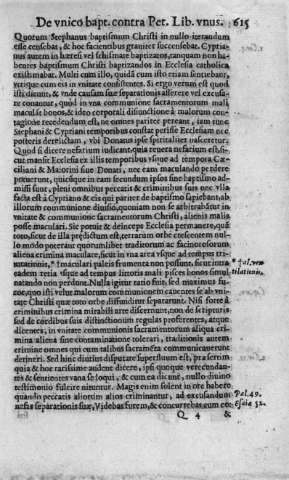 De vnico bapt. contra Pet. Lib. vnus. 615
Quorum Stephanus baptismum Christi in nullo iterandum
esse censebat, & hoc facientibus grauiter succensebat. Cypria-
nus autem in hæresi vel schismate baptizatos, tanquam non ha-
bentes baptismum Christi baptizandos in Ecclesia catholica
existimabat. Multi cum illo, quidã cum isto etiam sentiebant,
vtrique cum eis in vnitate consistentes. Si ergo verum est quod
isti dicunt, & vnde causam suæ separationis asserere vel excusa-
re conantur, quid in vna communione sacramentorum mali
maculẽt bonos, & ideo corporali disiunctione à malorum con-
tagione recedendum est, ne omnes pariter pereant, iam tunc
Stephani & Cypriani temporibus constat perisse Ecclesiam nec
posteris derelictam, vbi Donatus ipse spiritaliter nasceretur.
Quod si dicere nefarium iudicant, quia reuera nefarium est, si-
cut mansit Ecclesia ex illis temporibus vsque ad tempora Cæ-
ciliani & Maiorini siue Donati, nec eam maculando perdere
potuerunt, quicunque in eam secundum ipsos sine baptismo ad-
missi sunt, pleni omnibus peccatis & criminibus suis nec vlla
facta est à Cypriano & eis qui pariter de baptismo sapiebant, ab
illorum communione diuisio, quoniam non se arbitrabãtur in
vnitate & communione sacramentorum Christi, alienis malis
posse maculari. Sic potuit & deinceps Ecclesia permanere, quæ
toto, sicut de illa prædictum est, terrarum orbe crescentem nul-
lo modo poterat quorumlibet traditorum ac facinorosorum
aliena crimina maculare, sicut in vna area vsque ad tempus tri-
turationis, * immaculati paleis frumenta non possunt, sicut intra * ful. ven
eadem retia vsque ad tempus litoris mali pisces bonis simul tilationis,
natando non perdunt. Nulla igitur ratio fuit, sed maximus fu-
ror, quod isti velut malorum communionem cauentes se ab vni-
tate Christi quæ toto orbe diffunditur separarunt. Nisi forte à
criminibus crimina mirabili arte discernunt, non de scripturis
sed de cordibus suis distinctionum regulas proferentes, atque
dicentes, in vnitate communionis sacramentorum aliqua cri-
mina aliena sine contaminatione tolerari, traditionis autem
crimine omnes qui cum talibus sacramenta communicauerunt
deperire. Sed hinc diutius disputare superfluum est, præsertim
quia & hoc rarissime audent dicere, ipsi quoque verecundan-
tes & sentientes vana se loqui, & cum ea dicunt, nullo diuino
testimonio fulcire nituntur. Magis enim solent in ore habere
quando peccatis aliorum alios criminantur, ad excusandum Psal. 49.
nefas separationis suæ, Videbas furem, & concurrebas cum eo: Esaiæ 52.
Q 4 &